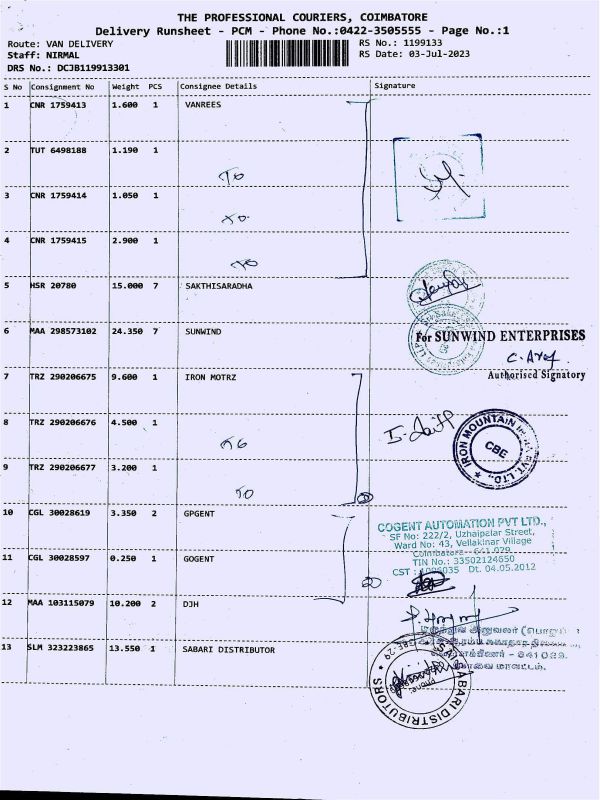 THE PROFESSIONAL COURIERS, COIMBATORE
Delivery Runsheet - PCM - Phone No.:0422-3505555 - Page No.:1
Route: VAN DELIVERY RS No.: 1199133
Staff: NIRMAL RS Date: 03-Jul-2023
DRS No.: DCJB119913301
S No Consignment No Weight PCS Consignee Details Signature
1 CNR 1759413 1.600 1 VANREES
2 TUT 6498188 1.190 1
3 CNR 1759414 1.050 1
4 CNR 1759415 2.900 1
5 HSR 20780 15.000 7 SAKTHISARADHA
6 MAA 298573102 24.350 7 SUNWIND
For SUNWIND ENTERPRISES
Authorised Signatory
7 TRZ 290206675 9.600 1 IRON MOTRZ
8 TRZ 290206676 4.500 1
IRON MOUNTAIN PVT. LTD.,
CBE
9 TRZ 290206677 3.200 1
10 CGL 30028619 3.350 2 GPGENT
COGENT AUTOMATION PVT LTD.,
SF No: 222/2, Uzhaipalar Street,
Ward No: 43, Vellakinar Village
Coimbatore - 641 029
TIN No.: 33502124650
11 CGL 30028597 0.250 1 GOGENT
CST : Dt. 04.05.2012
12 MAA 103115079 10.200 2 DJH
13 SLM 323223865 13.550 1 SABARI DISTRIBUTOR
SABARI DISTRIBUTORS
CBE-29
Phone: